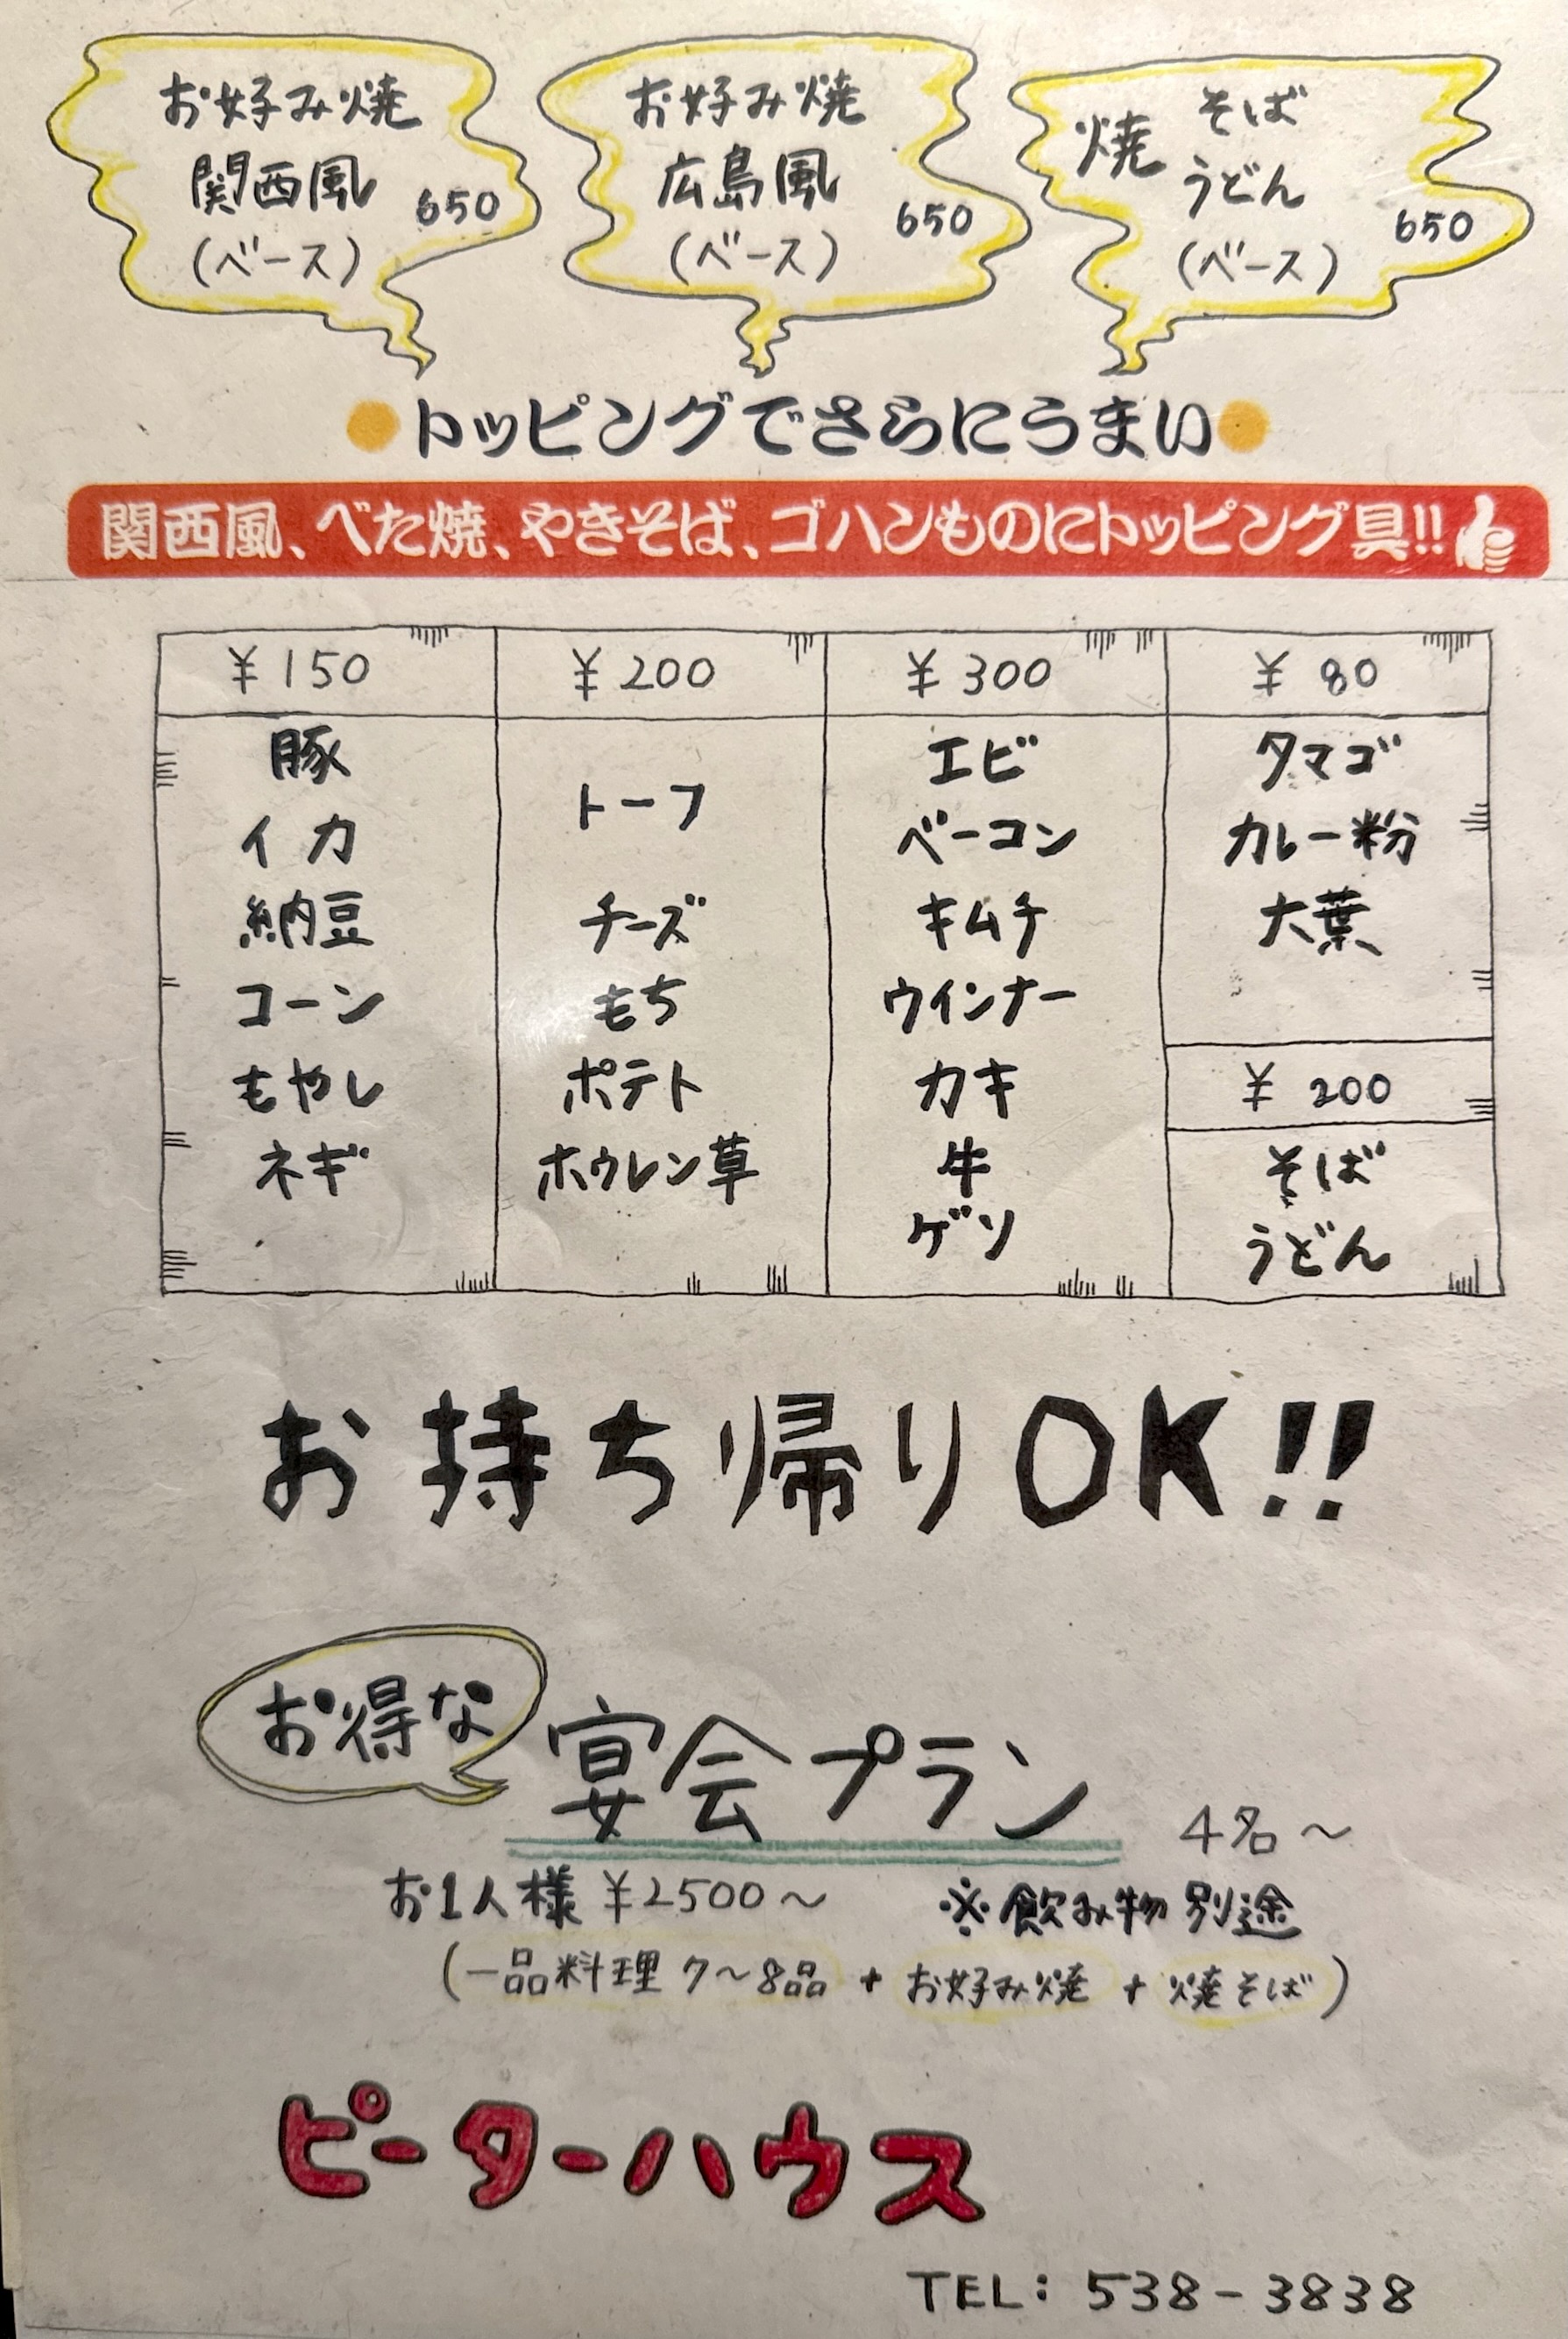 お好み焼
関西風
(ベース)
650
お好み焼
広島風
(ベース)
650
焼 そば
うどん
(ベース)
650
トッピングでさらにうまい
関西風、べた焼、やきそば、ゴハンものにトッピング具!!
¥150
豚
イカ
納豆
コーン
もやし
ネギ
¥200
トーフ
チーズ
もち
ポテト
ホウレン草
¥300
エビ
ベーコン
キムチ
ウインナー
カキ
牛
ゲソ
¥80
タマゴ
カレー粉
大葉
¥200
そば
うどん
お持ち帰りOK!!
お得な
宴会プラン 4名〜
お1人様 ¥2500〜 ※飲み物別途
(一品料理 7〜8品 + お好み焼 + 焼そば)
ピーターハウス
TEL: 538-3838